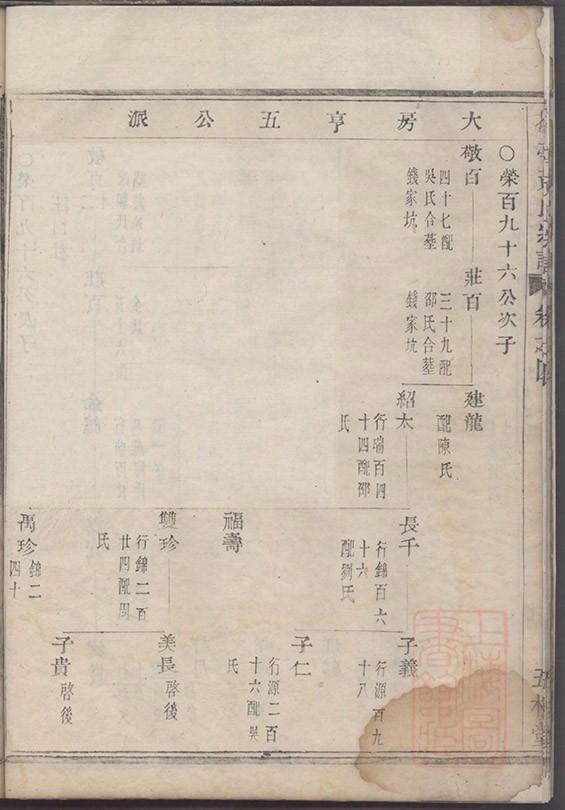 大房亨五公派
○榮百九十六公次子
敬百
四十七配
吳氏合墓
錢家坑
莊百
三十九配
邵氏合墓
錢家坑
建龍
配陳氏
紹太
行瑞百四
十四配邵
氏
長千
行錦百六
十六
配劉氏
福壽
雙珍
行錦二百
廿四配周
氏
萬珍
錦二
四十
子義
行源百九
十八
子仁
行源二百
十六配吳
氏
美長
啓後
子貴
啓後